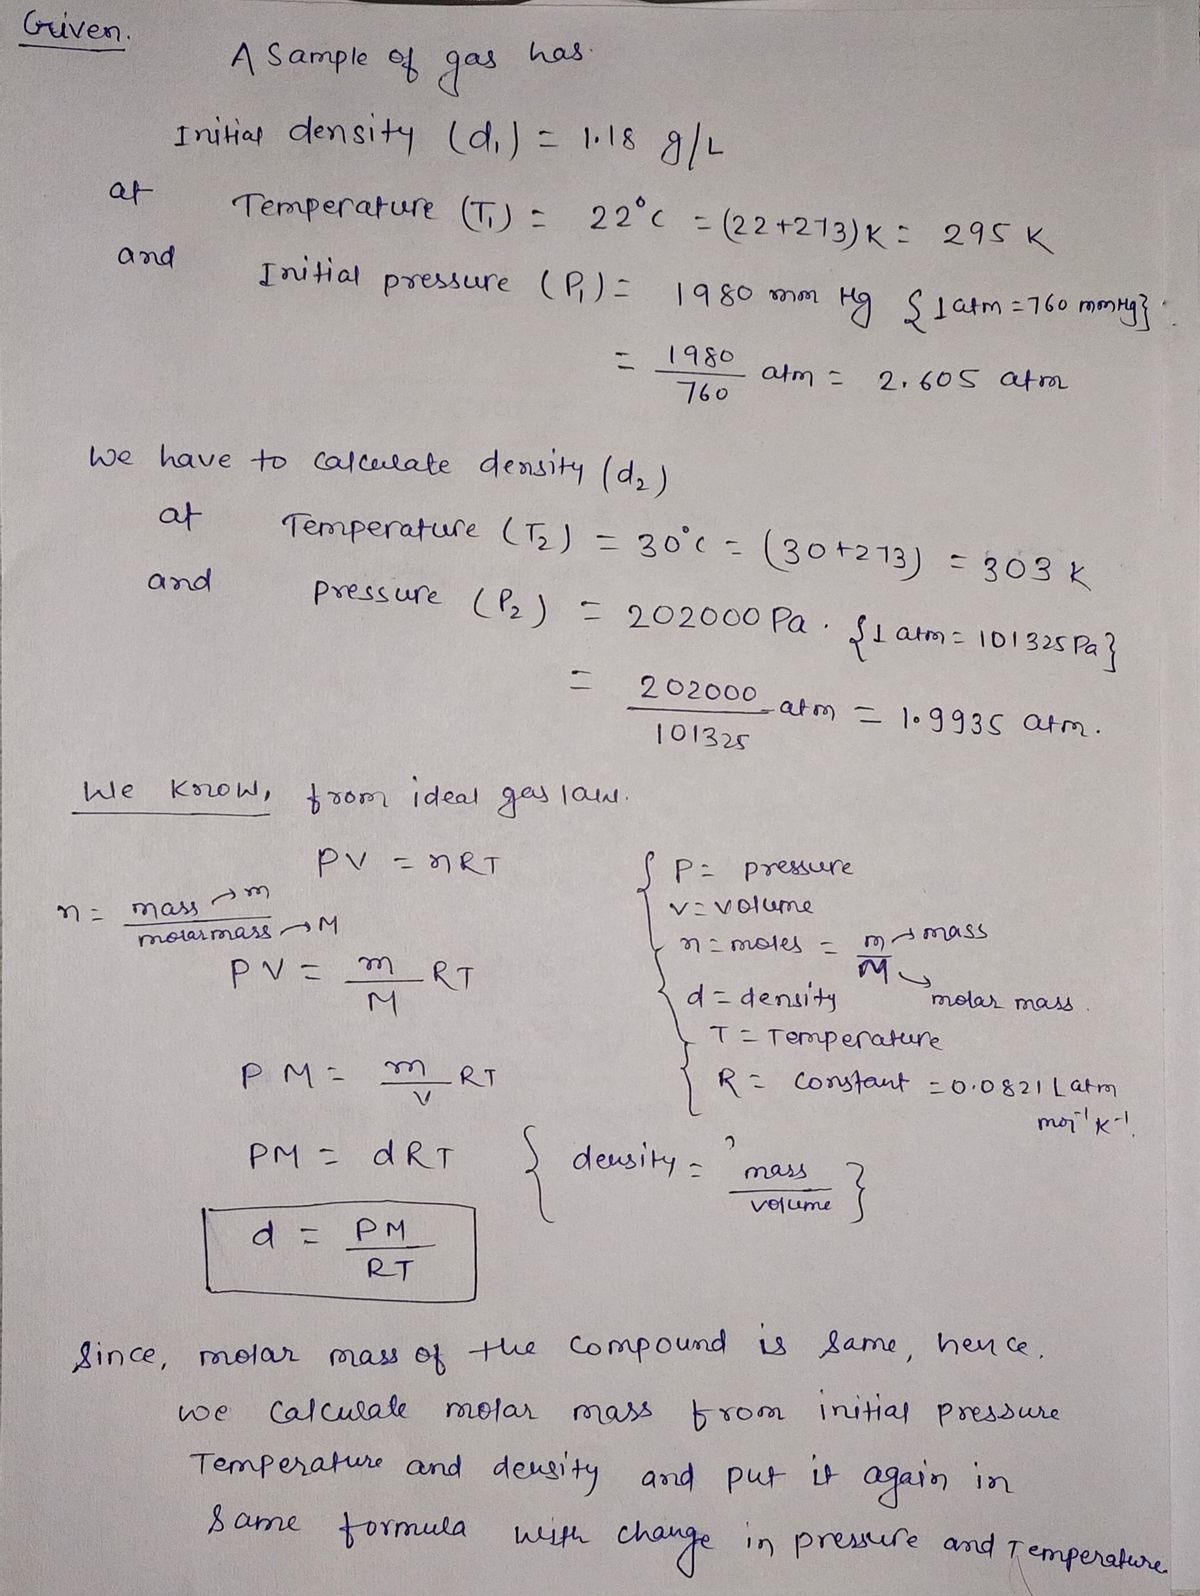 Given.
A Sample of gas has.
Initial density (d₁) = 1.18 g/L
at Temperature (T₁) = 22°C = (22+273)K = 295 K
and Initial pressure (P₁) = 1980 mm Hg {1 atm = 760 mmHg}
= 1980/760 atm = 2.605 atm
We have to calculate density (d₂)
at Temperature (T₂) = 30°C = (30+273) = 303 K
and pressure (P₂) = 202000 Pa. {1 atm = 101325 Pa}
= 202000/101325 atm = 1.9935 atm.
We know, from ideal gas law.
PV = nRT
n = mass → m / molar mass → M
PV = m/M RT
PM = m/V RT
PM = dRT
d = PM/RT
{ P = pressure
V = volume
n = moles = m → mass / M → molar mass.
d = density
T = Temperature
R = constant = 0.0821 L atm
mol⁻¹ K⁻¹.
{ density = mass/volume }
Since, molar mass of the compound is same, hence.
we calculate molar mass from initial pressure
Temperature and density and put it again in
same formula with change in pressure and Temperature